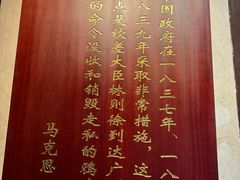 国政府在一八三七年、一八
八三九年采取非常措施，这
点是钦差大臣林则徐到达广
的命令没收和销毁走私的鸦
马克思